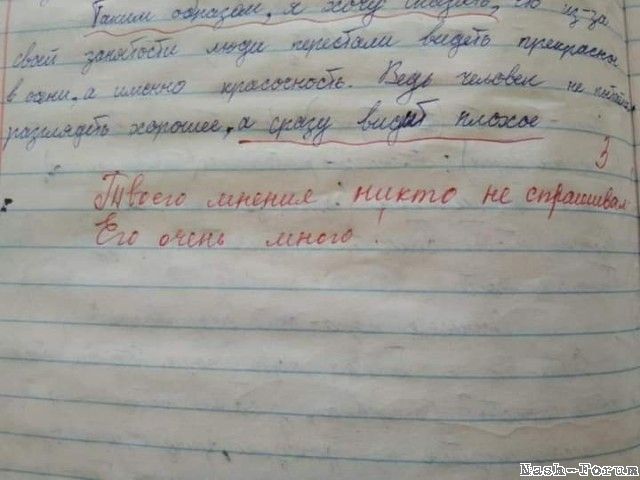 Таким образом, я хочу сказать, из-за
своей занятости люди перестали видеть прекрасно
в одни, а именно красосность. Ведь человек не
разглядеть хорошее, а сразу видит плохое
3
Твоего мнения никто не спрашивал
Его очень много!
Nash-Forum